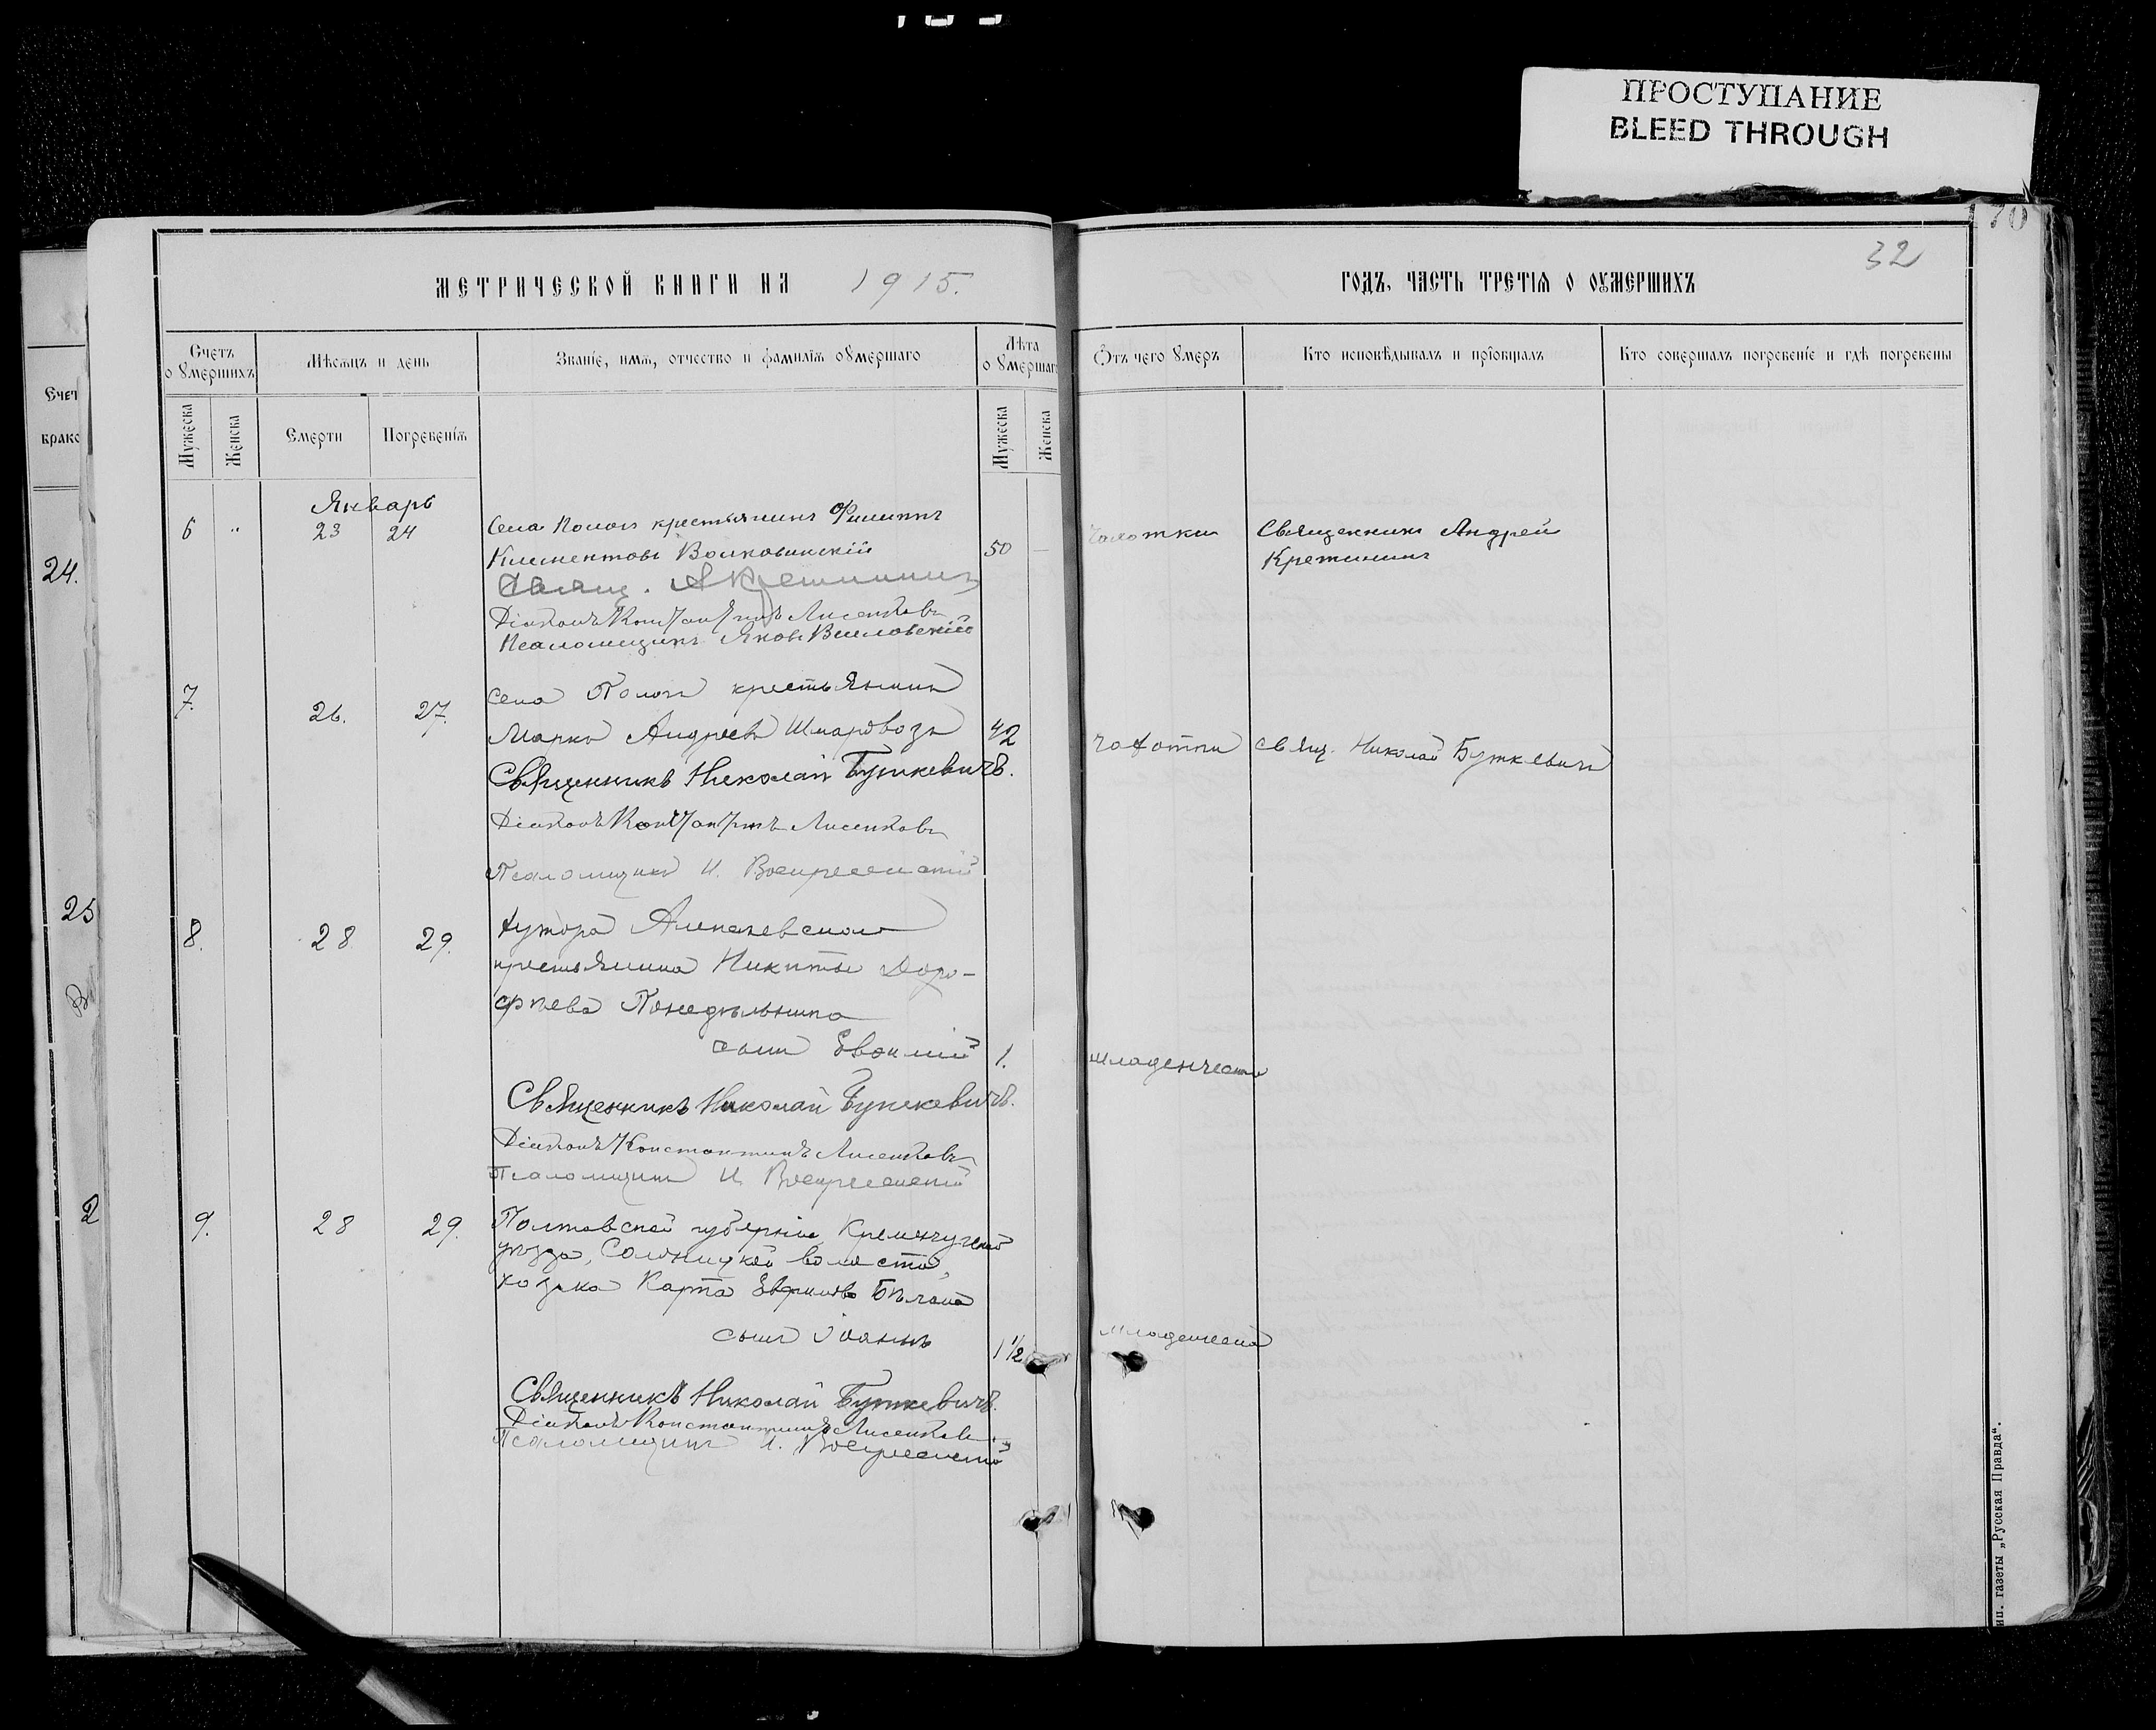 ПРОСТУПАНИЕ
BLEED THROUGH
170
32
МЕТРИЧЕСКОЙ КНИГИ НА 1915.
ГОДЪ, ЧАСТЬ ТРЕТІѦ О ОУМЕРШИХЪ
Счетъ оумершихъ
Мѣсѧцъ и день
Званіе, имѧ, отчество и фамиліѧ оумершаго
Лѣта оумершаго
Отъ чего оумеръ
Кто исповѣдывалъ и пріобщалъ
Кто совершалъ погребеніе и гдѣ погребены
Мужеска
Женска
Смерти
Погребеніѧ
Мужеска
Женска
Январь
6 " 23 24 Села Пологъ крестьянинъ Филиппъ
Климентовъ Волковинскій 50 — чахотки Священникъ Андрей
Кретининъ
Свящ. А Кретининъ
Діаконъ Константинъ Лисенковъ
Псаломщикъ Яковъ
7. 26. 27. Села Пологъ крестьянинъ
Марко Андреевъ Шмаровозъ 42 чахотки свящ. Николай Буткевичъ
Священникъ Николай Буткевичъ.
Діаконъ Константинъ Лисенковъ
Псаломщикъ И. Воскресенскій
8. 28 29. Хутора Алексеевскаго
крестьянина Никиты Доро-
фѣева Понедѣльника
сынъ Евфимій 1. младенческой
Священникъ Николай Буткевичъ.
Діаконъ Константинъ Лисенковъ
Псаломщикъ И. Воскресенскій
9. 28 29. Полтавской губерніи, Кременчугской
уѣзда, Солоницкой волости,
козака Карпа Бѣлаго
сынъ Іоаннъ 1 1/2 младенческой
Священникъ Николай Буткевичъ.
Діаконъ Константинъ Лисенковъ
Псаломщикъ И. Воскресенскій
24.
25
2
Счет
брако
ип. газеты „Русская Правда“.